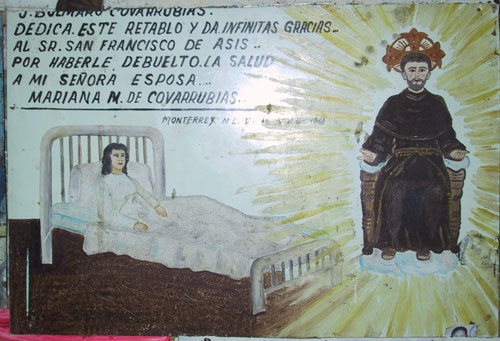 J. BULMARO COVARRUBIAS.
DEDICA. ESTE RETABLO Y DA. INFINITAS GRACIAS...
AL SR. SAN FRANCISCO DE ASIS..
POR HABERLE, DEBUELTO. LA SALUD
A MI SEÑORA ESPOSA....
MARIANA N. DE COVARRUBIAS..
MONTERREY. N.L.